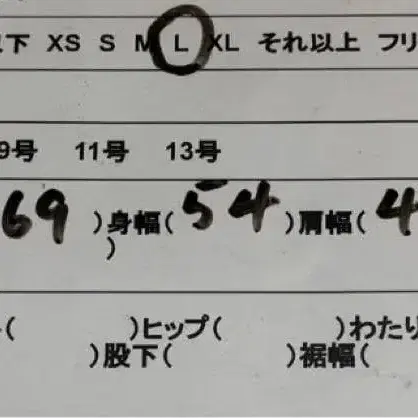 下 XS S M L XL それ以上 フリ
9号 11号 13号
69 )身幅( 54 )肩幅( 4
)
( )ヒップ( )わたり
)股下( )裾幅(